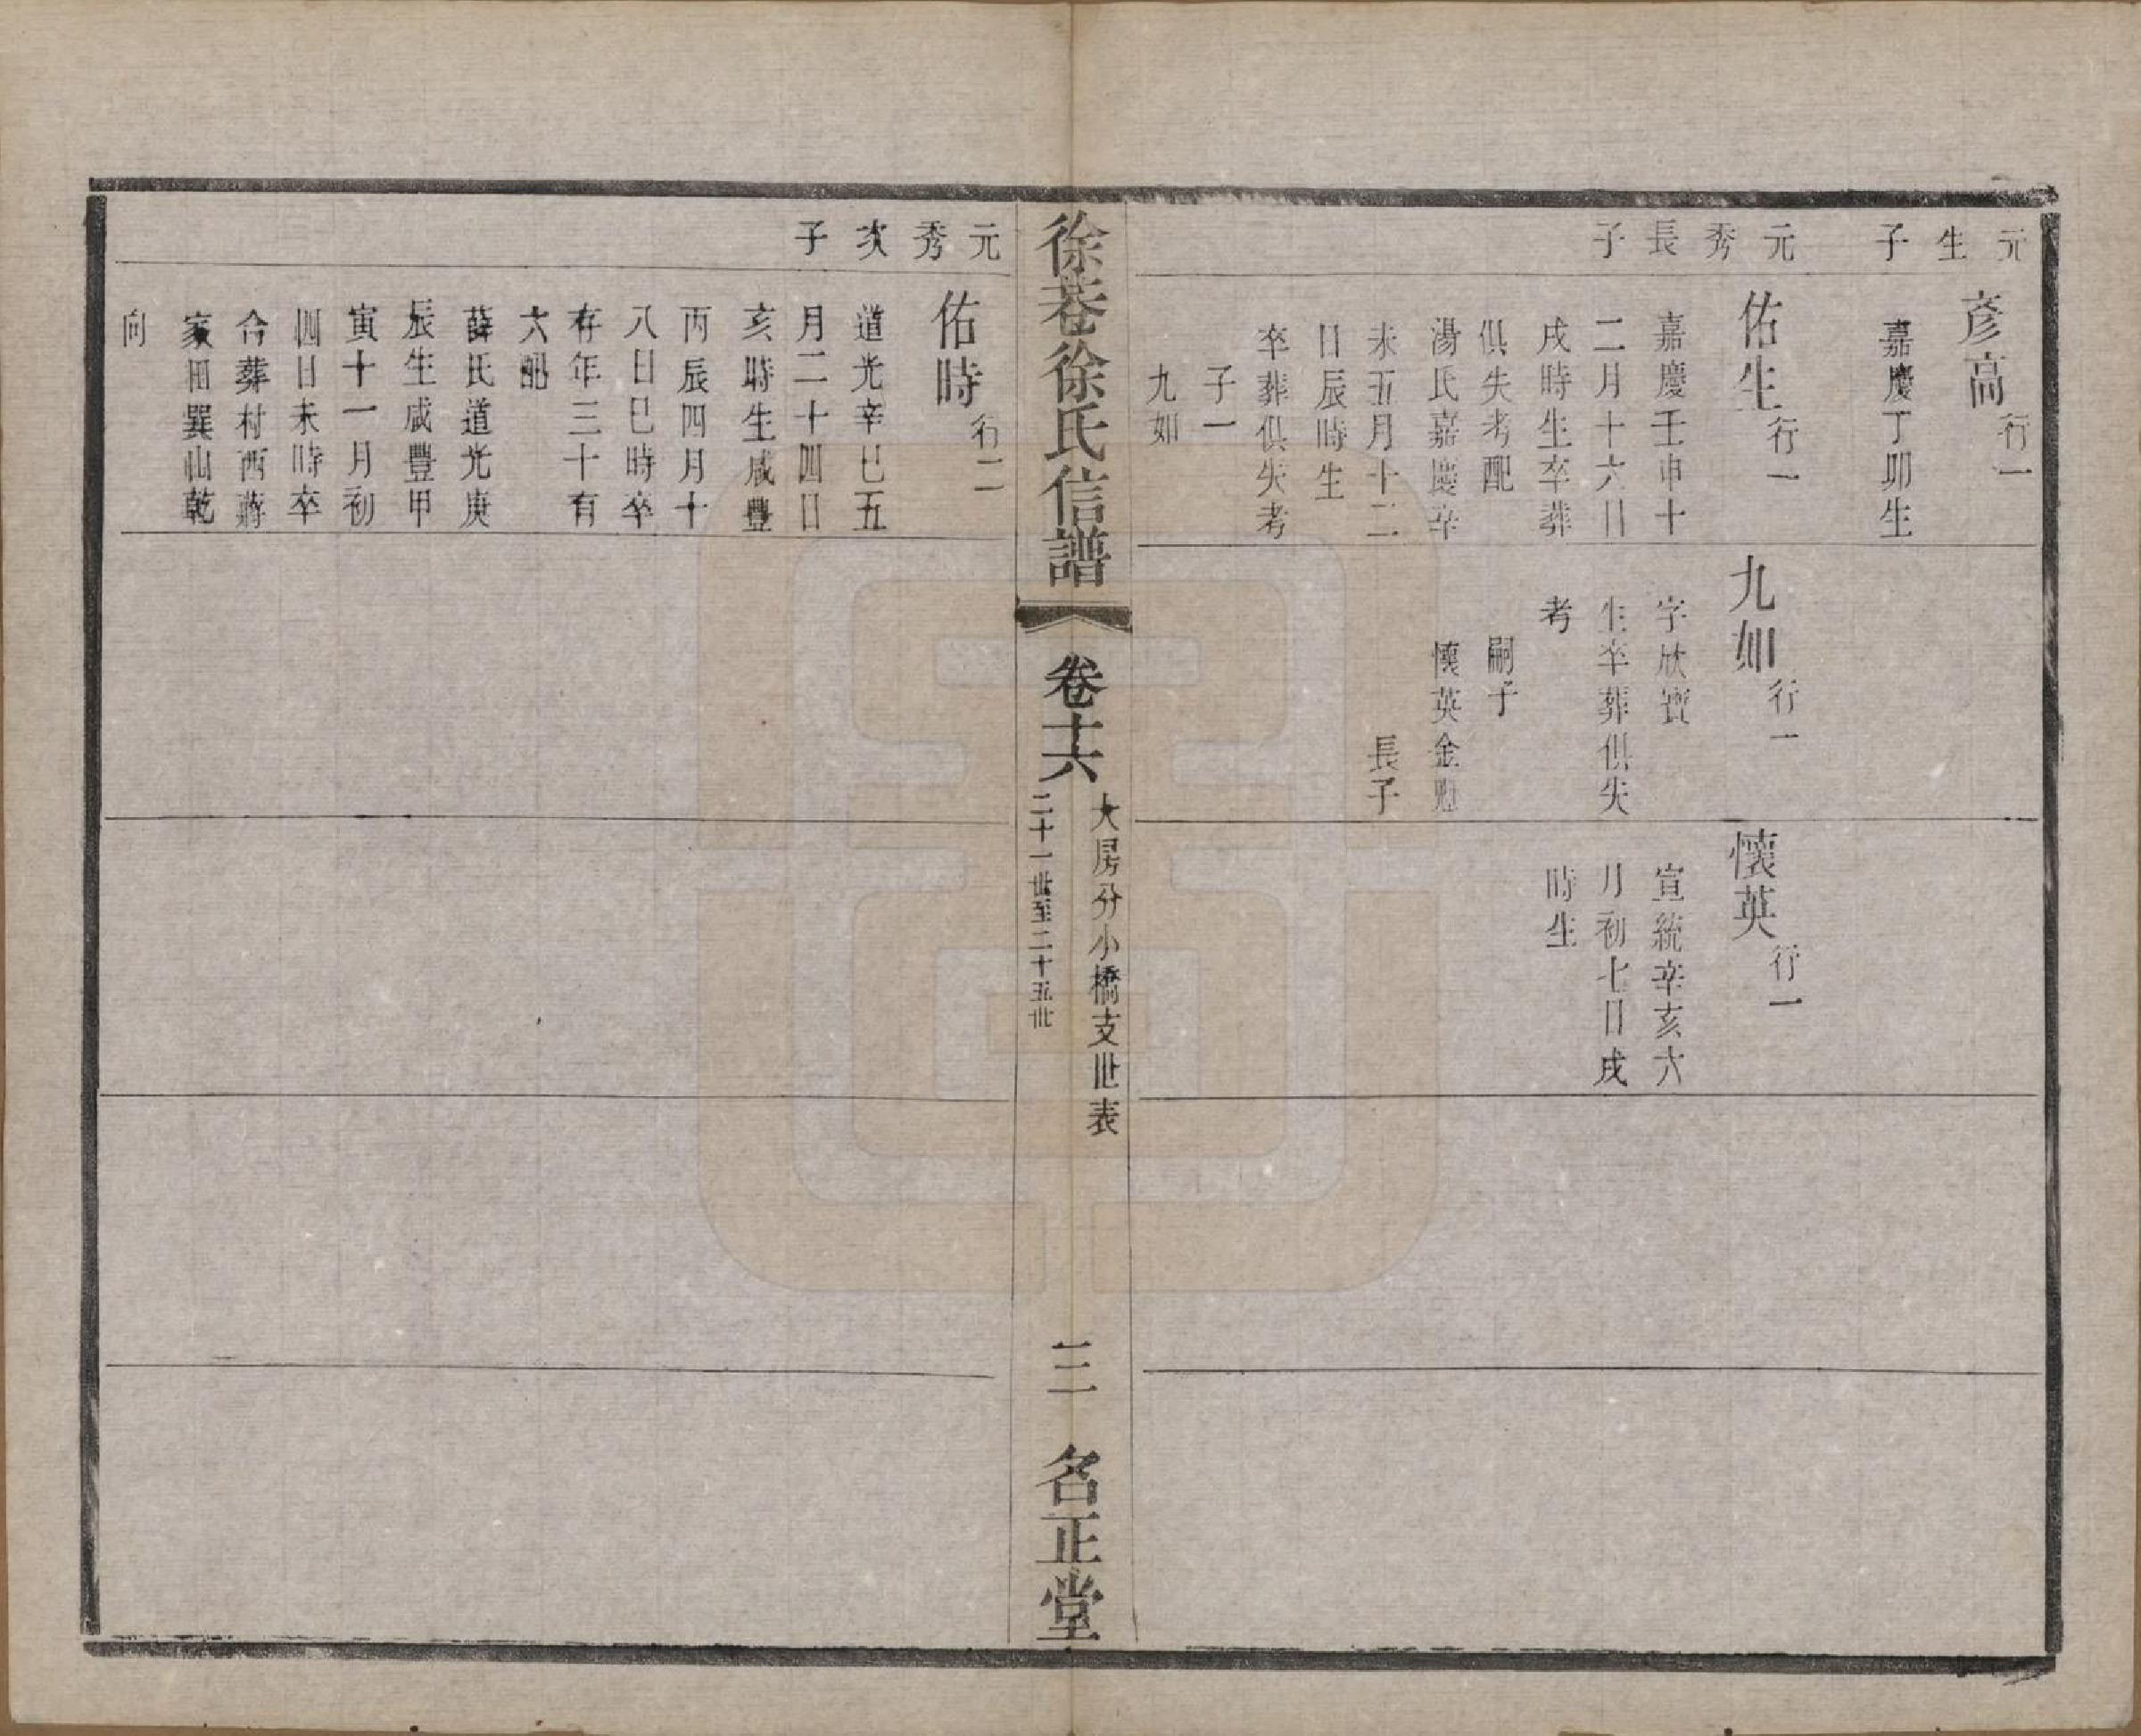 元生子
彥高行一
嘉慶丁卯生
元秀長子
佑生行一
嘉慶壬申十
二月十六日
戌時生卒葬
俱失考配
湯氏嘉慶辛
未五月十二
日辰時生
卒葬俱失考
子一
九如
九如行一
字欣寶
生卒葬俱失
考
嗣子
懷英金
長子
懷英行一
宣統辛亥六
月初七日戌
時生
徐巷徐氏信譜
卷十六
大房分小橋支世表
二十一世至二十五世
三
名正堂
元秀次子
佑時行二
道光辛巳五
月二十四日
亥時生咸豐
丙辰四月十
八日巳時卒
存年三十有
六配
薛氏道光庚
辰生咸豐甲
寅十一月初
四日未時卒
合葬村西蔣
家田巽山乾
向